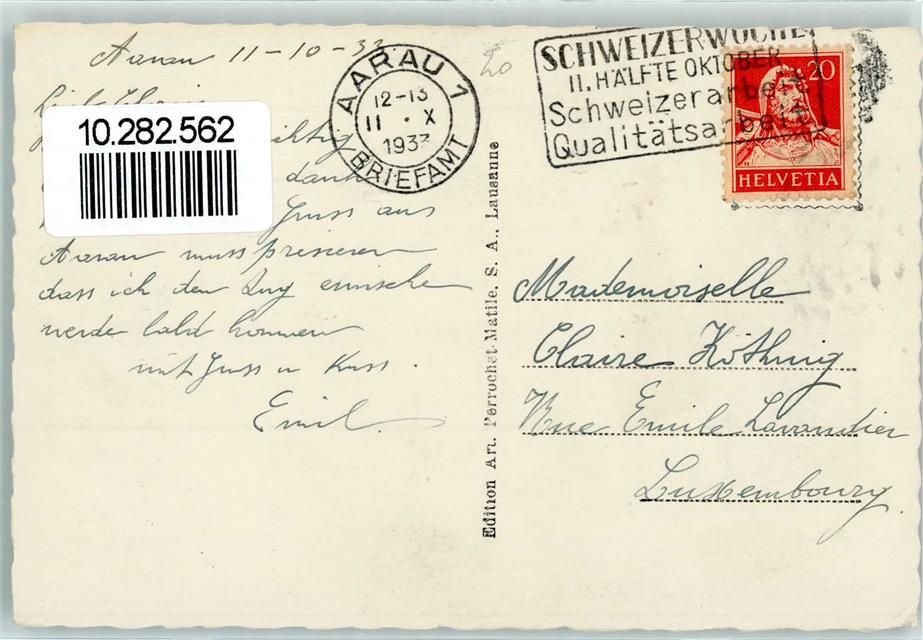 Aarau 11-10-33
20
AARAU 1
12-13
11 · X
1933
BRIEFAMT
SCHWEIZERWOCHE
II. HÄLFTE OKTOBER
Schweizerarbeit
Qualitätsarbeit
20
HELVETIA
10.282.562
Gruss aus
Aarau muss pressieren
dass ich den Zug erwische
werde bald kommen
mit Gruss u Kuss.
Emil
Edition Art. Perrochet-Matile, S. A., Lausanne
Mademoiselle
Claire Köthnig
Rue Emile Lavandier
Luxembourg